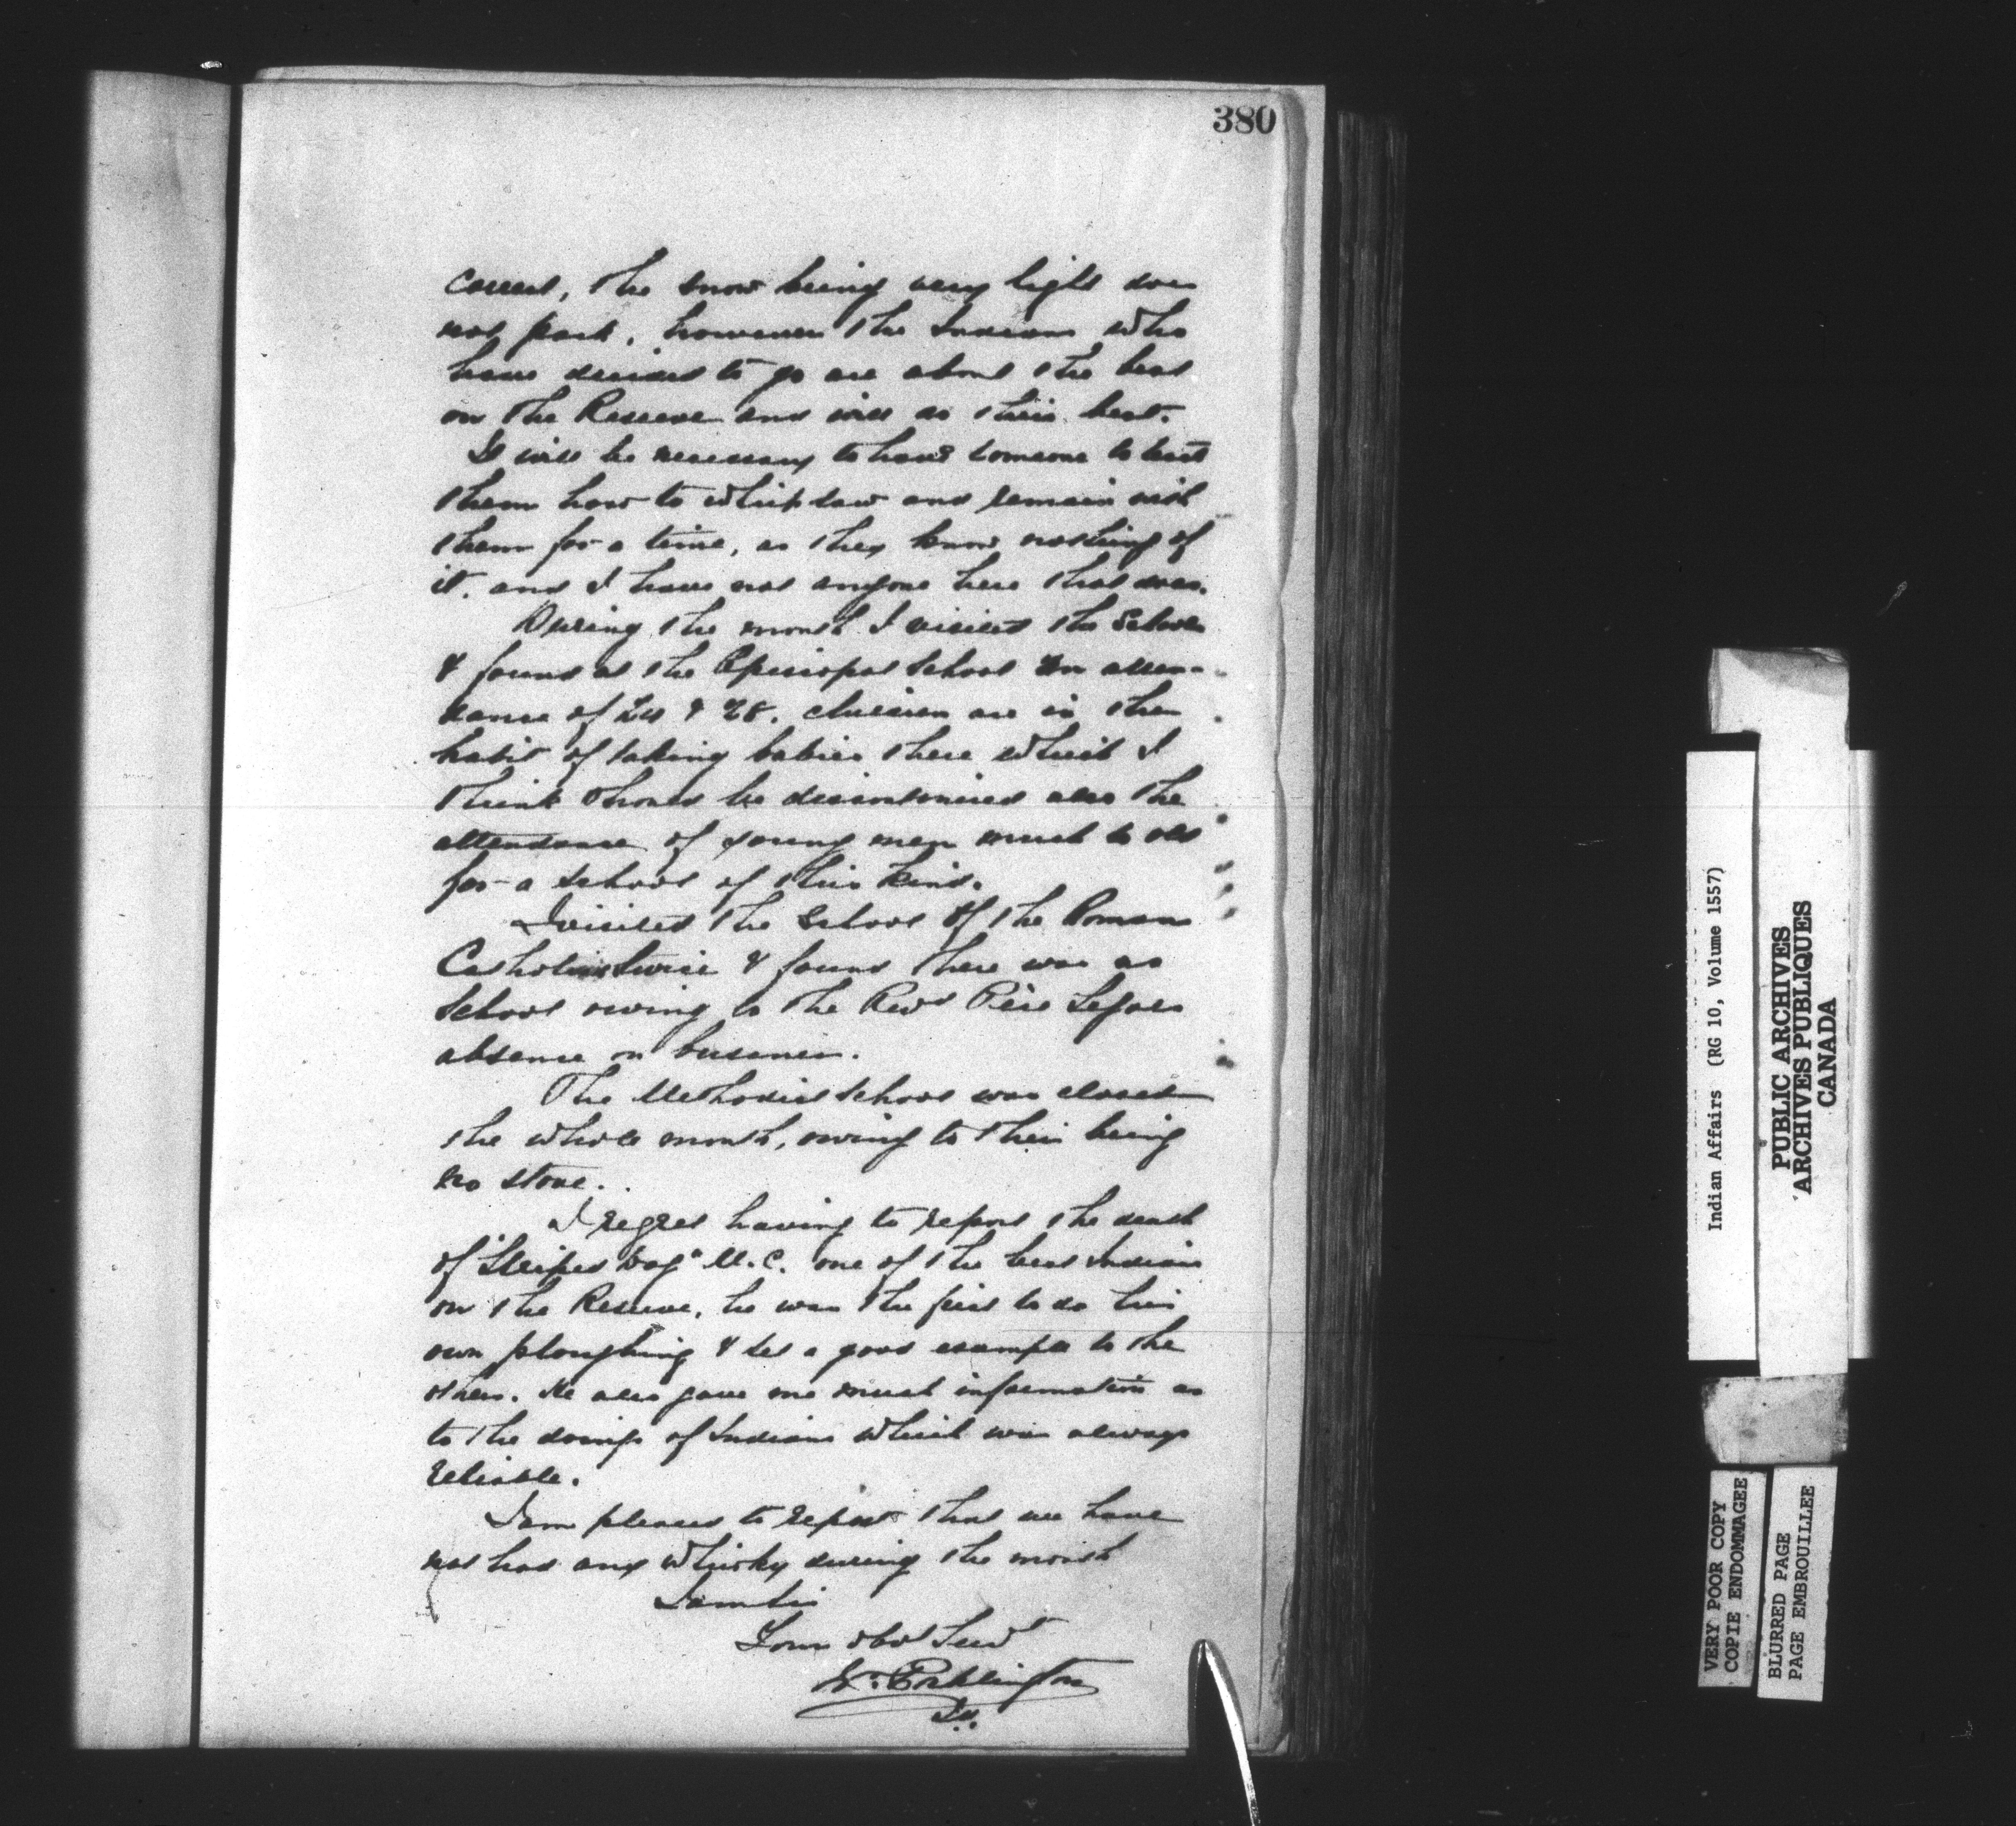 380
correct, the snow being very light does
not pack, however the Indians who
have decided to go are about the best
on the Reserve and will do their best.
It will be necessary to have someone to teach
them how to whipsaw and remain with
them for a time, as they know nothing of
it. and I have not anyone here that does.
During the month I visited the Schools
& found at the Episcopal School an atten-
dance of & 28. children are in the
habit of taking babies there which I
think should be discontinued also the
attendance of young men much to old
for a School of this kind.
I visited the School of the Roman
Catholics twice & found there was no
School owing to the Revd Père
absence on business.
The Methodist School was closed
the whole month, owing to their being
no stove.
I regret having to report the death
of "Striped Dog" M.C. one of the best Indians
on the Reserve, he was the first to do his
own ploughing & set a good example to the
others. He also gave me much information as
to the doings of Indians which was always
reliable.
I am pleased to report that we have
not had any whisky during the month
I am Sir
Your obdt Servt
W. Pocklington
Indian Affairs (RG 10, Volume 1557)
PUBLIC ARCHIVES
ARCHIVES PUBLIQUES
CANADA
VERY POOR COPY
COPIE ENDOMMAGEE
BLURRED PAGE
PAGE EMBROUILLEE